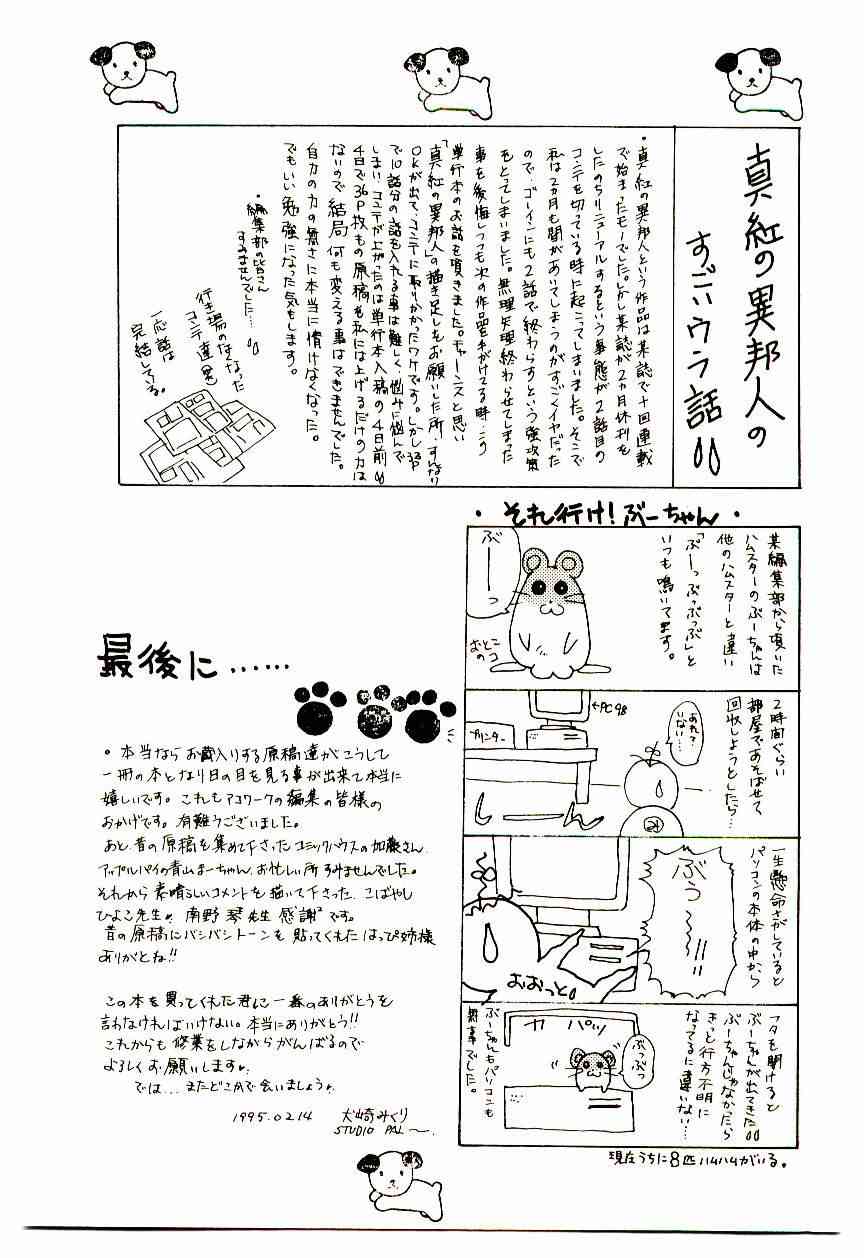 真紅の異邦人の
すごいウラ話
・真紅の異邦人という作品は某誌で十回連載
で始まったモノでした。しかし某誌が2ヵ月休刊を
したのちリニューアルするという事態が2話目の
コンテを切っている時に起こってしまいました。そこで
私は2ヵ月も間があいてしまうのがすごくイヤだった
ので、ゴーインにも2話で終わらすという強攻策
をとってしまいました。無理矢理終わらせてしまった
事を後悔しつつも次の作品を手がけてる時、この
単行本のお話を頂きました。チャーンスと思い
「真紅の異邦人」の描き足しをお願いした所、すんなり
OKが出て、コンテに取りかかったワケです。しかし33P
で10話分の話を入れる事は難しく、悩みに悩んで
しまい、コンテが上がったのは単行本入稿の4日前
4日で36P枚もの原稿を私には上げるだけの力は
ないので結局何も変える事はできませんでした。
自分の力の無さに本当に情けなくなった。
でもいい勉強になった気もします。
・編集部の皆さん
すみませんでした…
行き場のなくなった
コンテ達(笑)
一応話は
完結している。
・それ行け!ぶーちゃん・
某編集部から頂いた
ハムスターのぶーちゃんは
他のハムスターと違い
「ぶーっぶっぶっぶ」と
いつも鳴いてます。
ぶーっ
おとこ
のコ
2時間ぐらい
部屋であそばせて
回収しようとしたら…
あれ?
いない…
←PC98
プリンター
しーん
一生懸命さがしていると
パソコンの本体の中から
ぶぅ〜〜!!
おおっと。
フタを開けると
ぶーちゃんが出てきた
ぶーちゃんじゃなかったら
きっと行方不明に
なってるに違いない…
カパッ
ぶっぶっ
ぶーちゃんもパソコンも
無事でした。
現在うちに8匹ハムハムがいる。
最後に……
・本当ならお蔵入りする原稿達がこうして
一冊の本となり日の目を見る事が出来て本当に
嬉しいです。これもアコワークの編集の皆様の
おかげです。有難うございました。
あと、昔の原稿を集めて下さったコミックハウスの加藤さん、
アップルパイの青山まーちゃん、お忙しい所すみませんでした。
それから素晴らしいコメントを描いて下さった、こばやし
ひよこ先生、南野琴先生感謝です。
昔の原稿にバシバシトーンを貼ってくれたはっぴ姉様
ありがとね!!
この本を買ってくれた君に一番のありがとうを
言わなければいけない。本当にありがとう!!
これからも修業をしながらがんばるので
よろしくお願いします。
では…またどこかで会いましょう。
1995.02.14 犬崎みくり
STUDIO PAL〜.